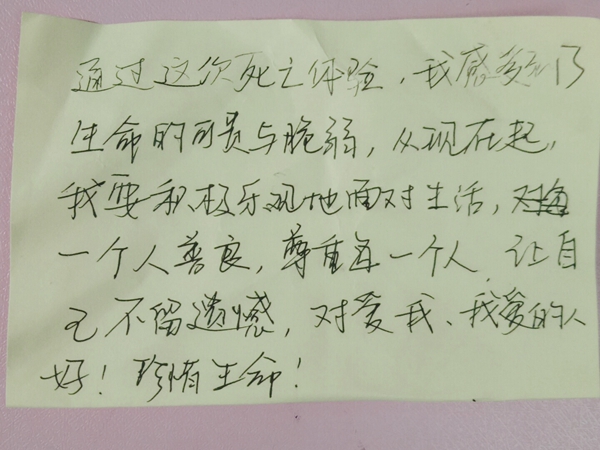 通过这次死亡体验,我感受到了
生命的可贵与脆弱,从现在起,
我要积极乐观地面对生活,对每
一个人善良,尊重每一个人,让自
己不留遗憾,对爱我、我爱的人
好!珍惜生命!